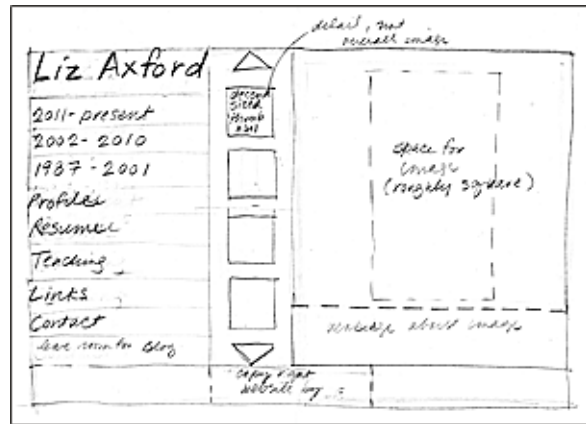 Liz Axford
2011-present
2002-2010
1987-2001
Profiles
Resumee
Teaching
Links
Contact
leave room for Blog
detail, not
overall image
decent
sized
thumb
nail
space for
image
(roughly square)
verbiage about image
copyright
website by